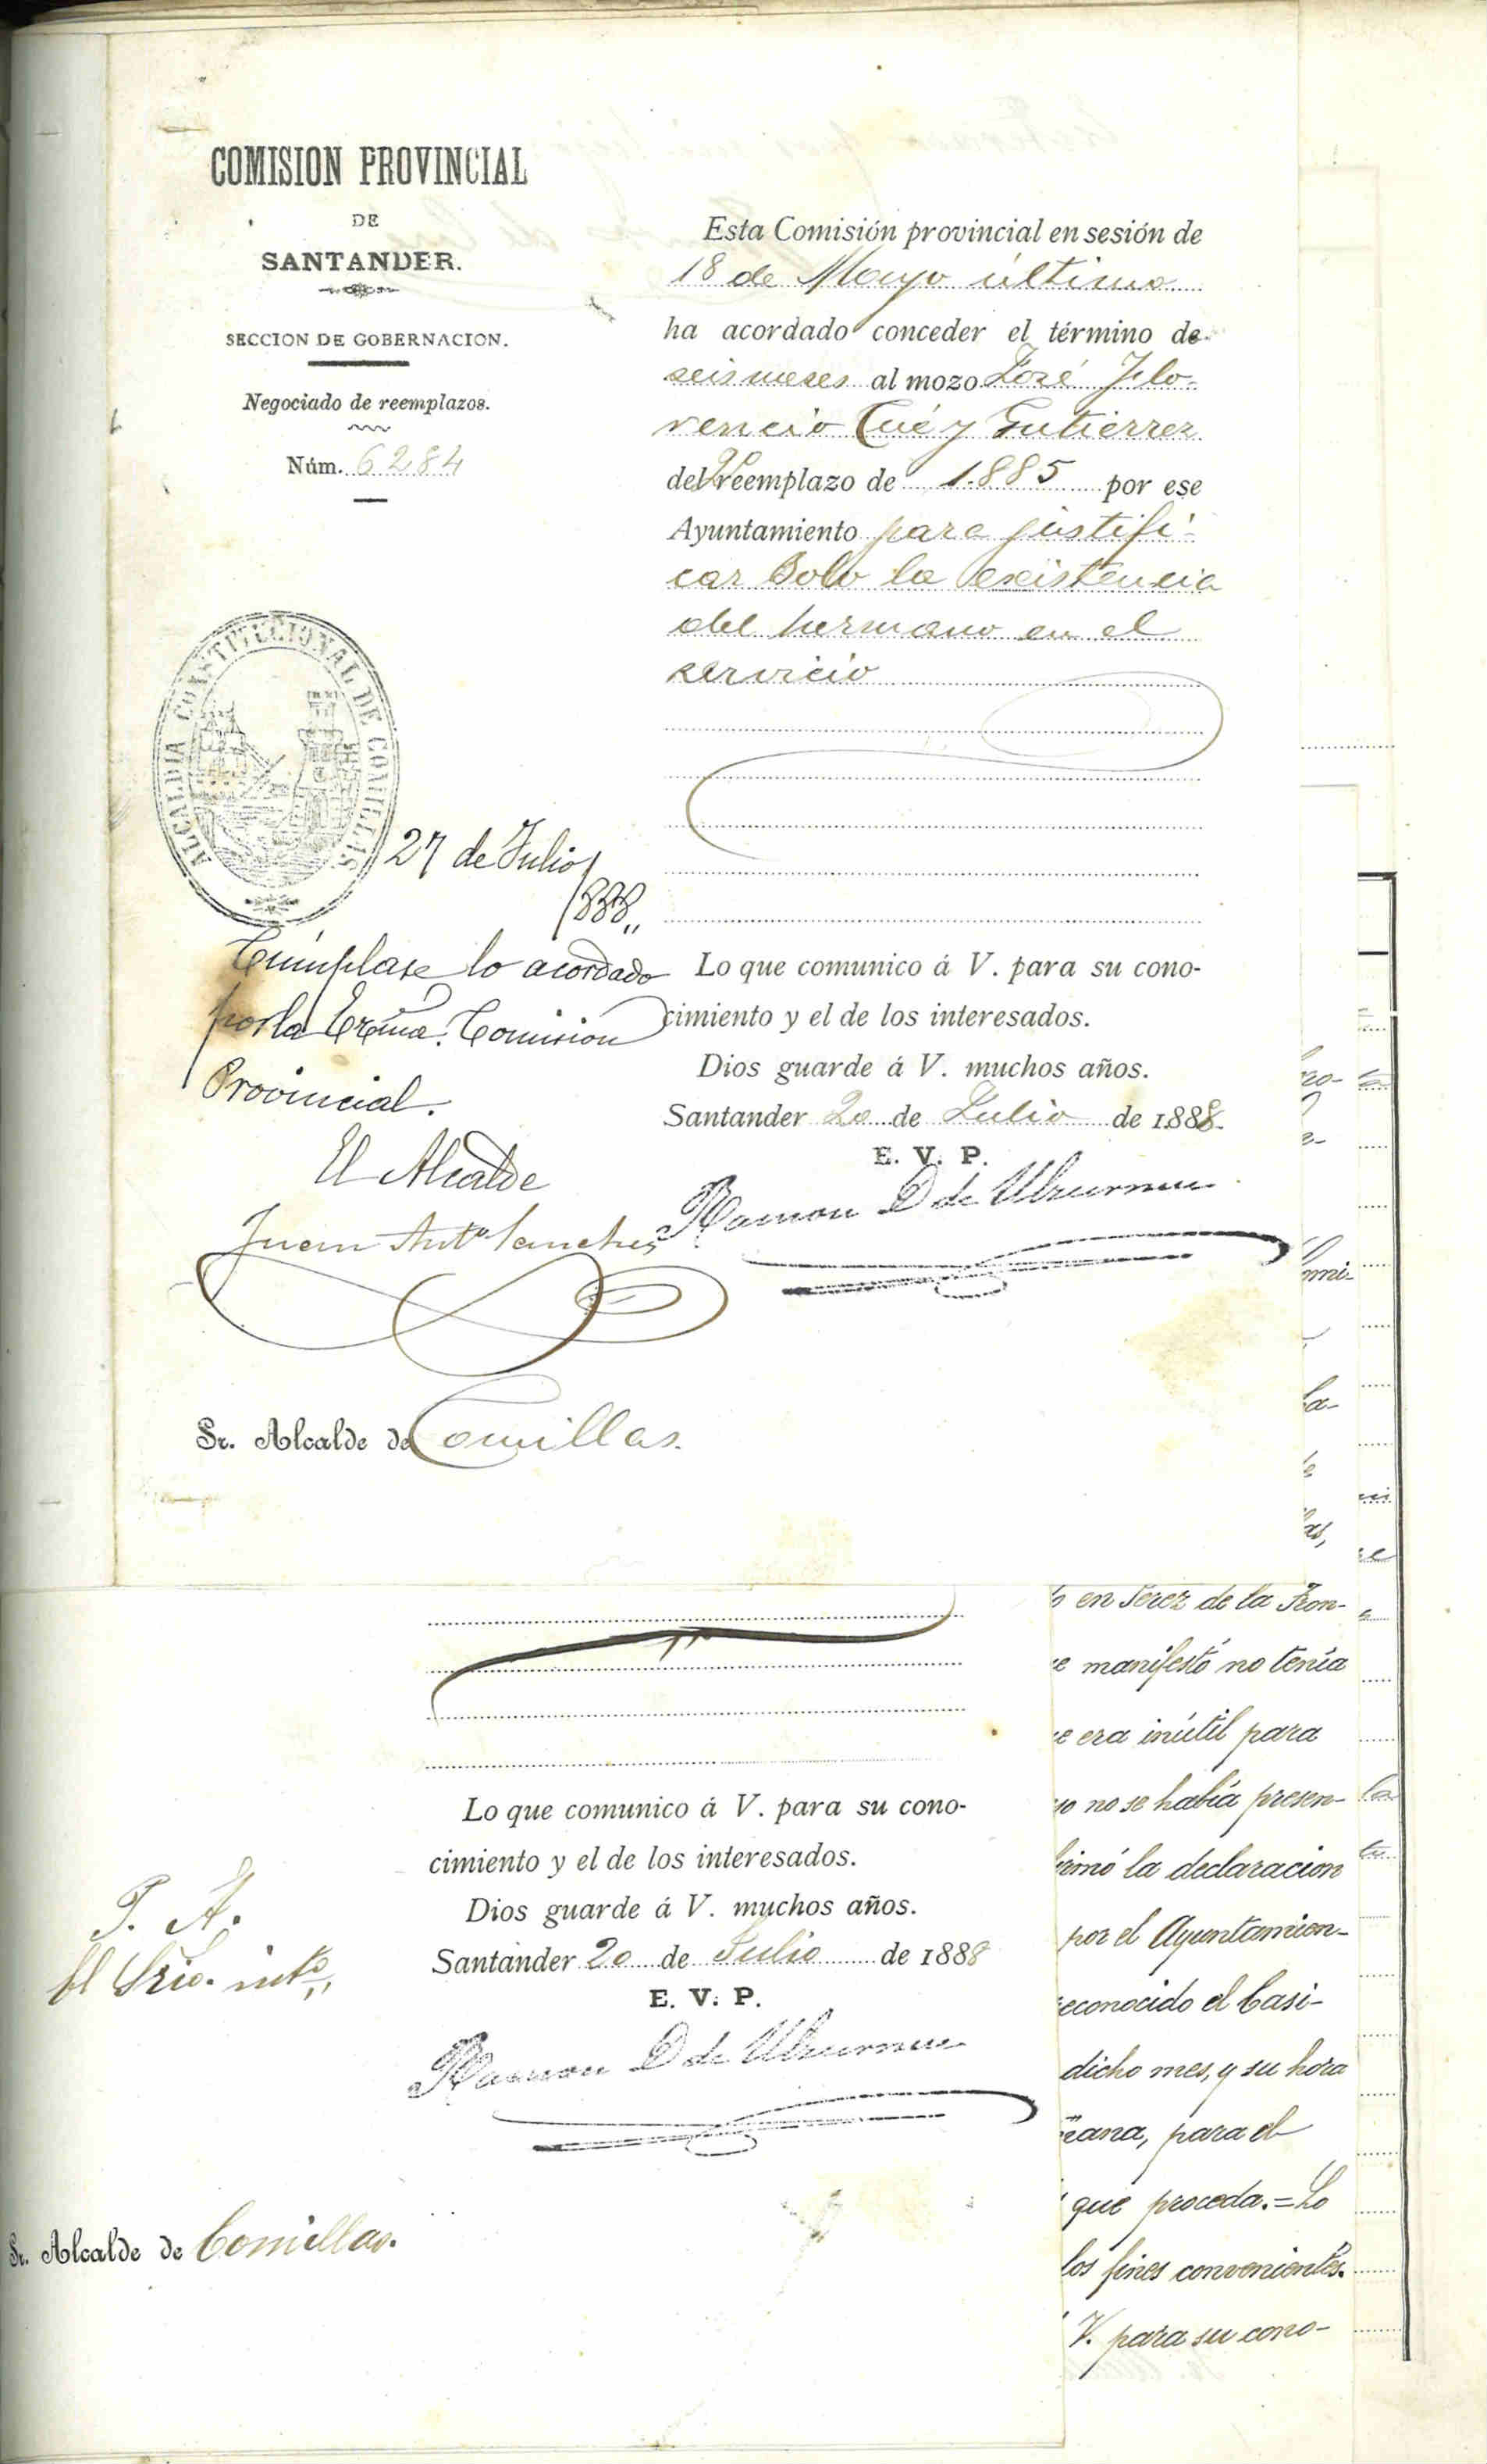 COMISION PROVINCIAL
DE
SANTANDER.
SECCION DE GOBERNACION.
Negociado de reemplazos.
Núm. 6284
Esta Comisión provincial en sesión de
18 de Mayo último
ha acordado conceder el término de
seis meses al mozo José Flo-
rencio Cué y Gutierrez
del reemplazo de 1.885 por ese
Ayuntamiento para justifi-
car solo la existencia
del hermano en el
servicio
ALCALDIA CONSTITUCIONAL DE COMILLAS
27 de Julio
1888,,
Cúmplase lo acordado
por la Exma. Comision
Provincial.
El Alcalde
Juan Anto Sanchez
Lo que comunico á V. para su cono-
cimiento y el de los interesados.
Dios guarde á V. muchos años.
Santander 20 de Julio de 1888.
E. V. P.
Ramon D de Ulzurrun
Sr. Alcalde de Comillas.
Lo que comunico á V. para su cono-
cimiento y el de los interesados.
Dios guarde á V. muchos años.
Santander 20 de Julio de 1888
E. V. P.
Ramon D de Ulzurrun
P. A.
El Srio. into,,
Sr. Alcalde de Comillas.
en Jerez de la Fron-
e manifestó no tenía
e era inútil para
no se había presen-
irmó la declaracion
por el Ayuntamien-
econocido el Casi-
dicho mes, y su hora
ñana, para el
que proceda.=Lo
los fines convenientes.
V. para su cono-